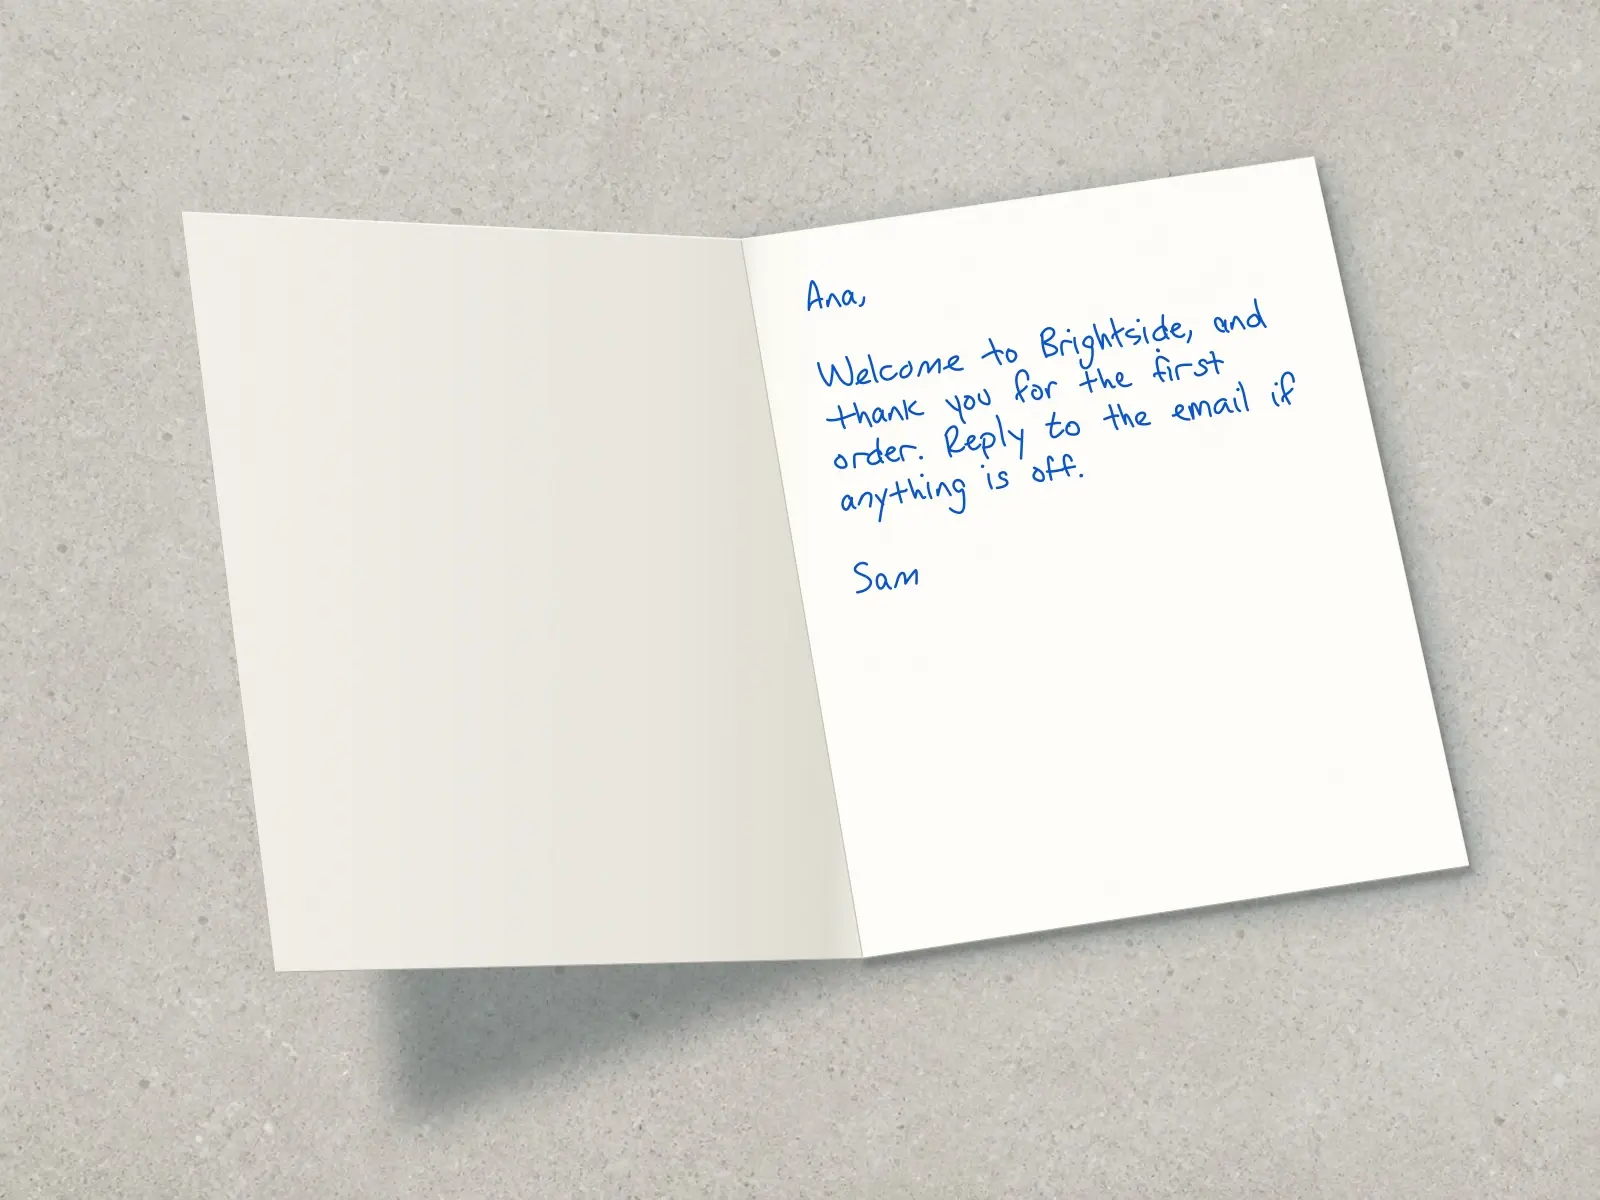 Ana,
Welcome to Brightside, and
thank you for the first
order. Reply to the email if
anything is off.
Sam